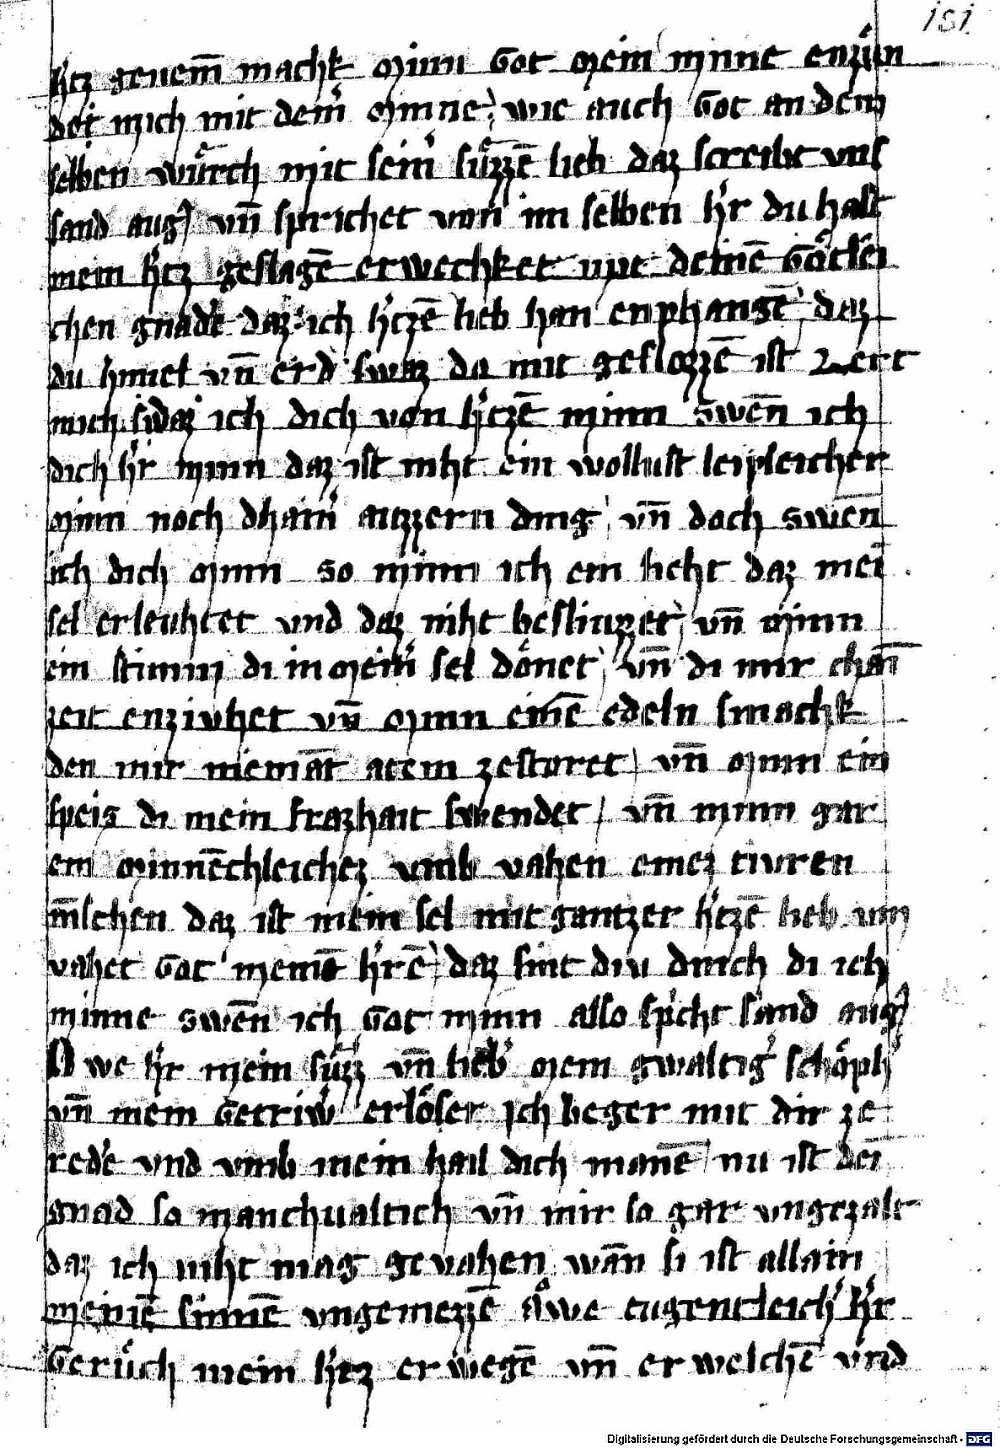 151
h'tz genem̄ machk minn Got mein minne enzün
dei mich mit dem' minne / wie auch Got an dem
selben würch mit seim' süzzē lieb daz screibt vns
sand aug' vn̄ sprichet von im selben h'r du hast
mein h'tz geslagē erwechket vnt deinē Götlei
chen gnadē daz ich h'tzē lieb han enphangē / daz
du himel vn̄ erd swaz da mit geslozzē ist Lert
mich daz ich dich von h'tzē minn swēn ich
dich h'r minn daz ist niht ein wollust leipleicher
minn noch dhain' auzzern ding / vn̄ doch swen̄
ich dich minn so minn ich ein lieht daz mei̅
sel erleuhtet vnd daz niht besliuzzet / vn̄ minn
ein stimm di in meim' sel dönet / vn̄ di mir chain̄
zeit enzivhet vn̄ minn einē edeln smachk
den mir niemāt atem zestoret / vn̄ minn ein
speis di mein frazhait swendet / vn̄ minn gar
ein minnēchleichez vmb vahen einez tivren
m̄schen daz ist mein sel mit gantzer h'tzē lieb vm
vahet Got meinē h'rē / daz sint div dinch di ich
minne swēn ich Got minn also sp'icht sand aug'
Owe h'r mein süzz' vn̄ lieb' mein gwaltig' schöph'
vn̄ mein Getriw' erlöser Ich beger mit dir ze
redē vnd vmb mein hail dich manē / nu ist dei̅
gnad so manchualtich vn̄ mir so gar vngezalt
daz ich niht mag gevahen wān si ist allain
meinē sinnē vngemezzē awe tugentleich' h'r
Gerüch mein h'tz erwegē vn̄ erwelchē vnd
Digitalisierung gefördert durch die Deutsche Forschungsgemeinschaft - DFG